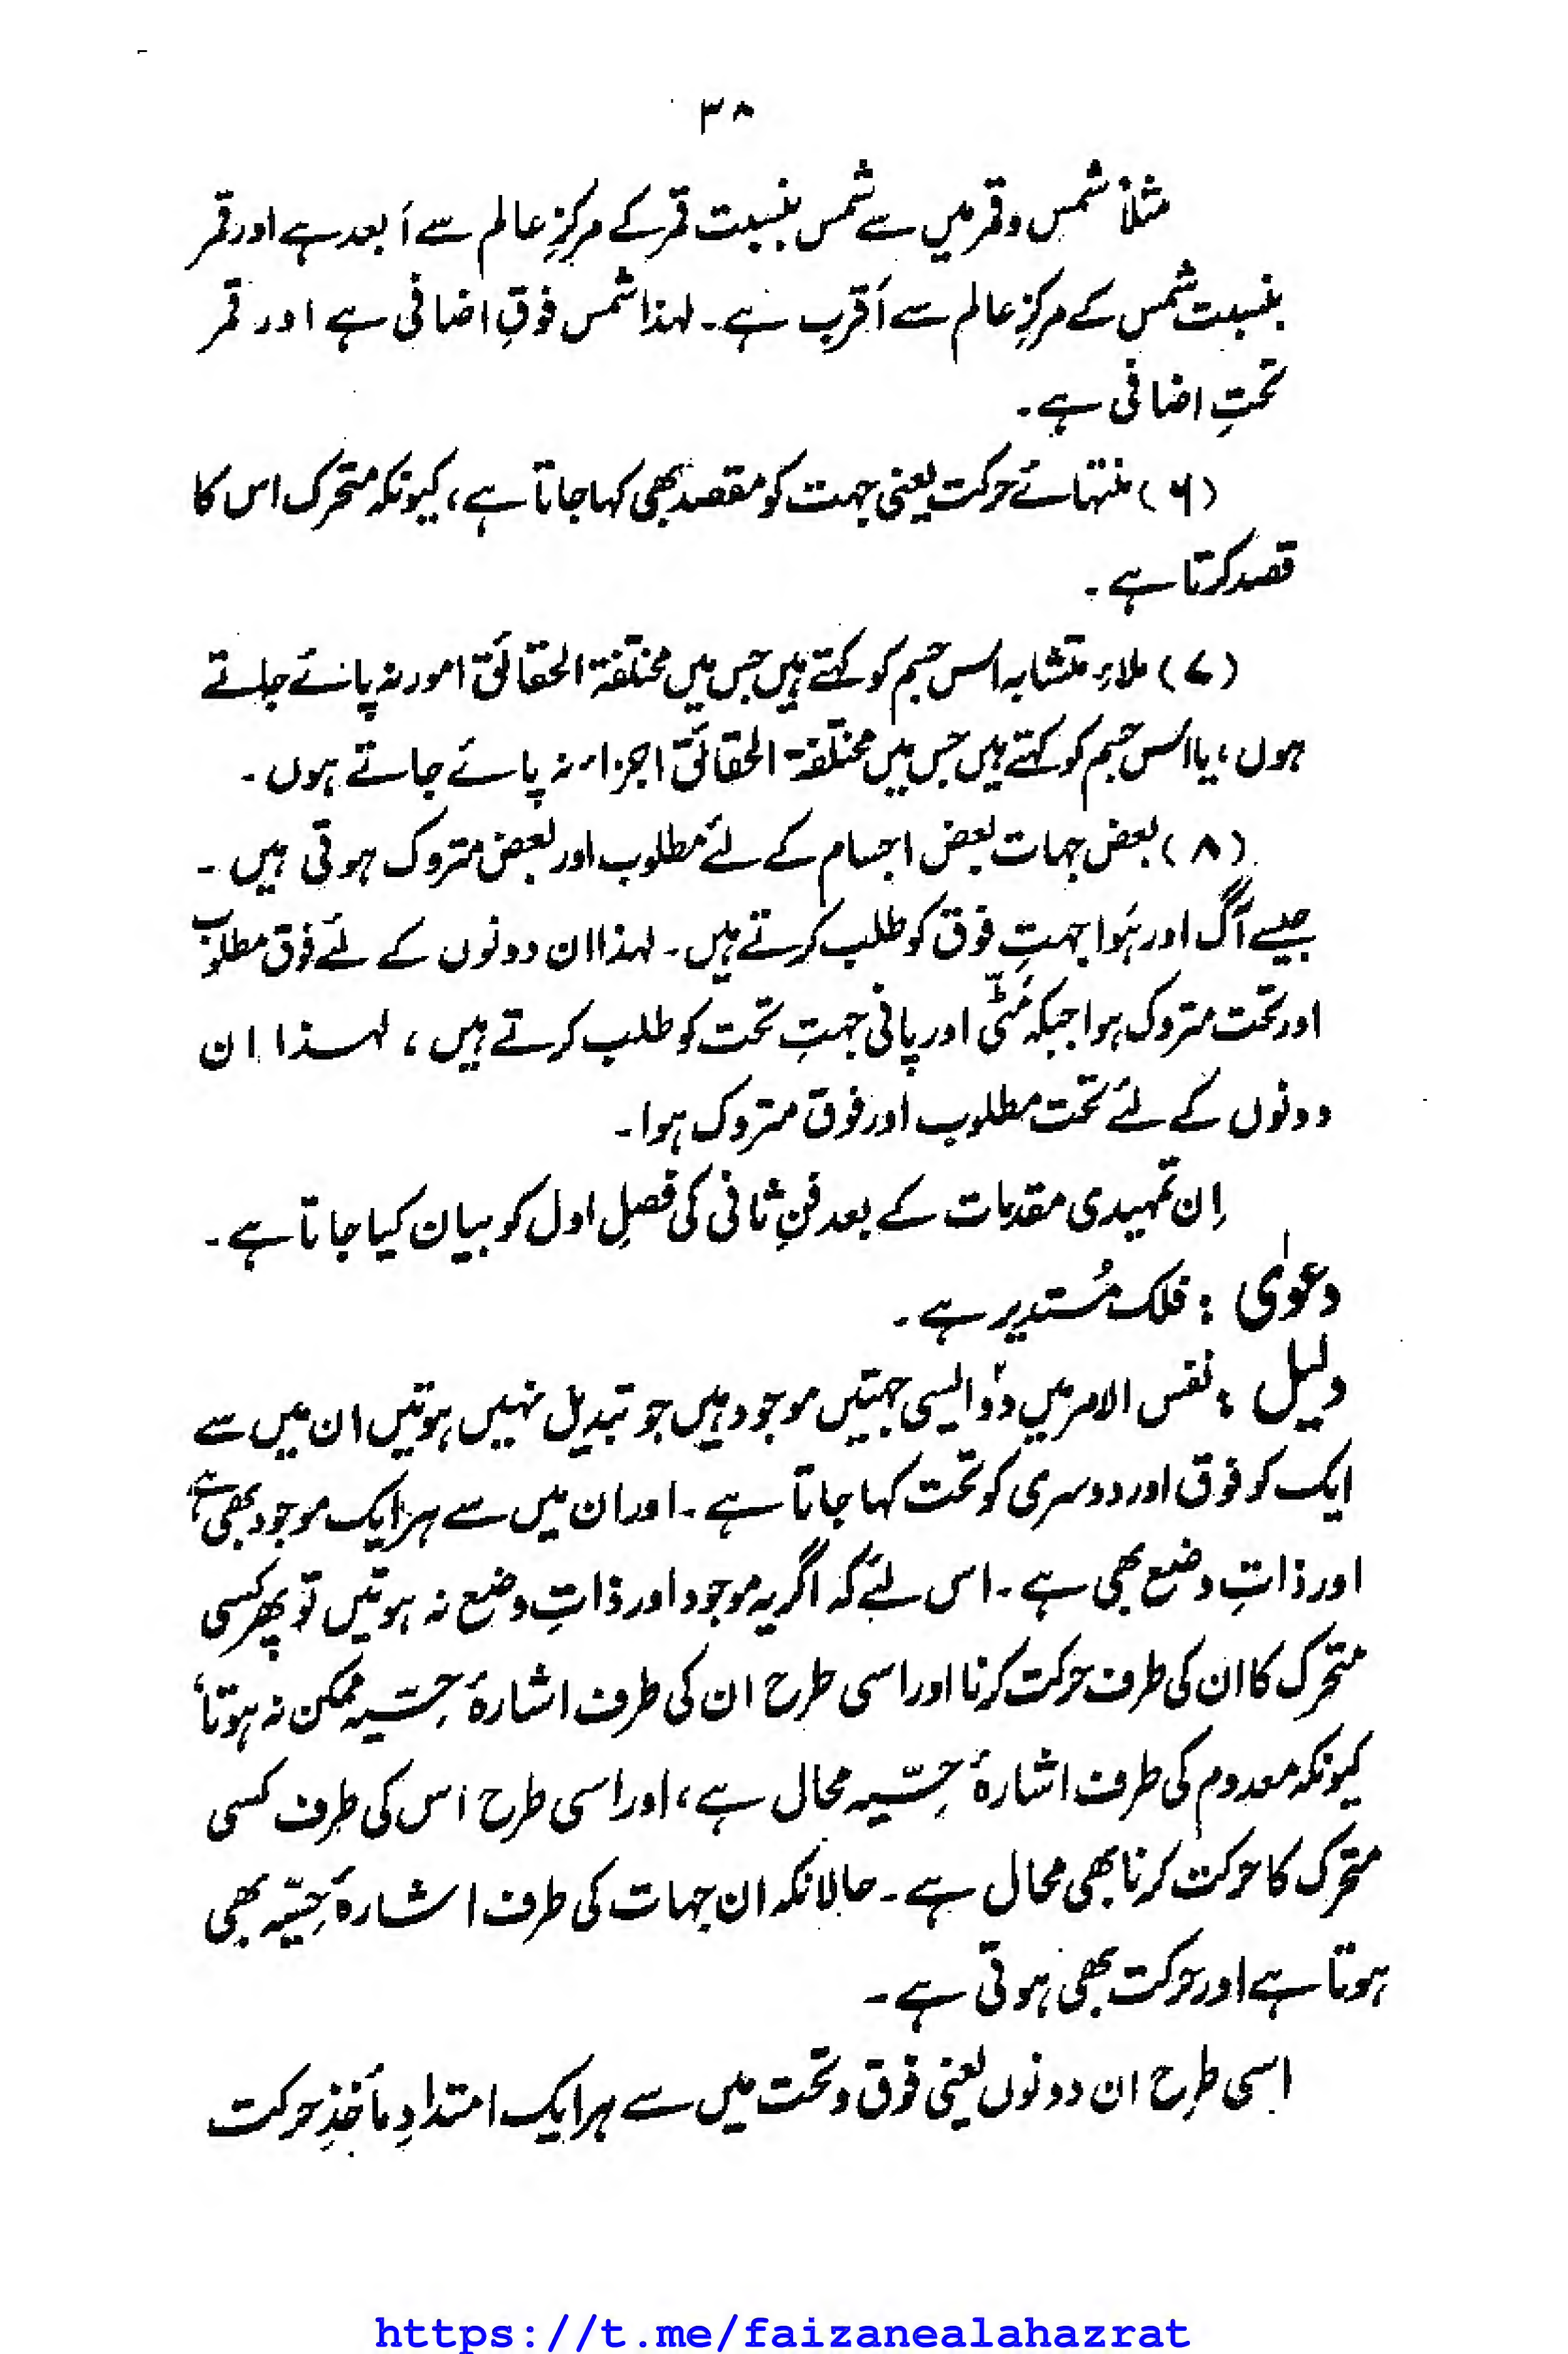 ۳۸
مثلاً شمس و قمر میں سے شمس بنسبت قمر کے مرکزِ عالم سے اَبعد ہے اور قمر
بنسبت شمس کے مرکزِ عالم سے اَقرب ہے۔ لہذا شمس فوقِ اضافی ہے اور قمر
تحتِ اضافی ہے۔
(۶) منتہائے حرکت یعنی جہت کو مقصد بھی کہا جاتا ہے، کیونکہ متحرک اس کا
قصد کرتا ہے۔
(۷) ملاءِ متشابہ اس جسم کو کہتے ہیں جس میں مختلفۃ الحقائق امور نہ پائے جاتے
ہوں، یا اُس جسم کو کہتے ہیں جس میں مختلفۃ الحقائق اجزاء نہ پائے جاتے ہوں۔
(۸) بعض جہات بعض اجسام کے لئے مطلوب اور بعض متروک ہوتی ہیں۔
جیسے آگ اور ہَوا جہتِ فوق کو طلب کرتے ہیں۔ لہذا ان دونوں کے لئے فوق مطلوب
اور تحت متروک ہوا جبکہ مَٹّی اور پانی جہتِ تحت کو طلب کرتے ہیں، لہذا ان
دونوں کے لئے تحت مطلوب اور فوق متروک ہوا۔
اِن تمہیدی مقدمات کے بعد فنِ ثانی کی فصلِ اول کو بیان کیا جاتا ہے۔
دعوٰی : فلک مُستدیر ہے۔
دلیل : نفس الامر میں دوؔ ایسی جہتیں موجود ہیں جو تبدیل نہیں ہوتیں ان میں سے
ایک کو فوق اور دوسری کو تحت کہا جاتا ہے۔ اور ان میں سے ہر ایک موجود بھی ہے
اور ذاتِ وضع بھی ہے۔ اس لئے کہ اگر یہ موجود اور ذاتِ وضع نہ ہوتیں تو پھر کسی
متحرک کا ان کی طرف حرکت کرنا اور اسی طرح ان کی طرف اشارۂ حِسّیہ ممکن نہ ہوتا،
کیونکہ معدوم کی طرف اشارۂ حِسّیہ محال ہے، اور اسی طرح اس کی طرف کسی
متحرک کا حرکت کرنا بھی محال ہے۔ حالانکہ ان جہات کی طرف اشارۂ حِسّیہ بھی
ہوتا ہے اور حرکت بھی ہوتی ہے۔
اسی طرح ان دونوں یعنی فوق و تحت میں سے ہر ایک امتدادِ مأخذِ حرکت
https://t.me/faizanealahazrat